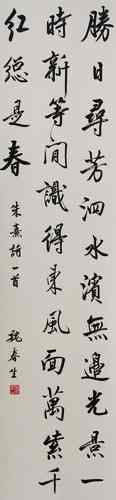 勝日尋芳泗水濱無邊光景一
時新等閒識得東風面萬紫千
紅總是春
朱熹詩一首
魏春生